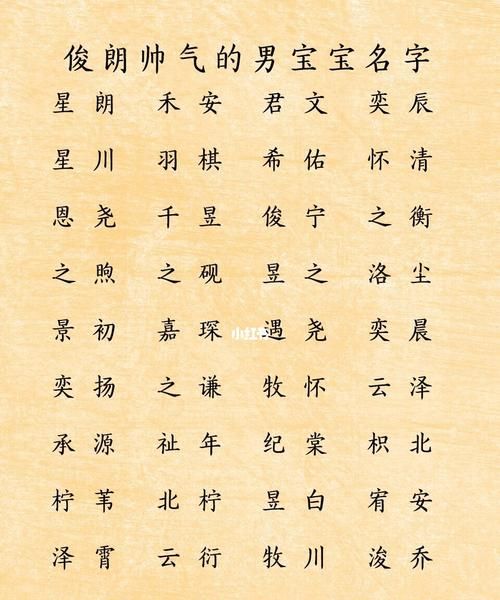 俊朗帅气的男宝宝名字
星朗 禾安 君文 奕辰
星川 羽棋 希佑 怀清
恩尧 千昱 俊宁 之衡
之煦 之砚 昱之 洛尘
景初 嘉琛 遇尧 奕晨
小红书
奕扬 之谦 牧怀 云泽
承源 祉年 纪棠 枳北
柠苇 北柠 昱白 宥安
泽霄 云衍 牧川 浚乔